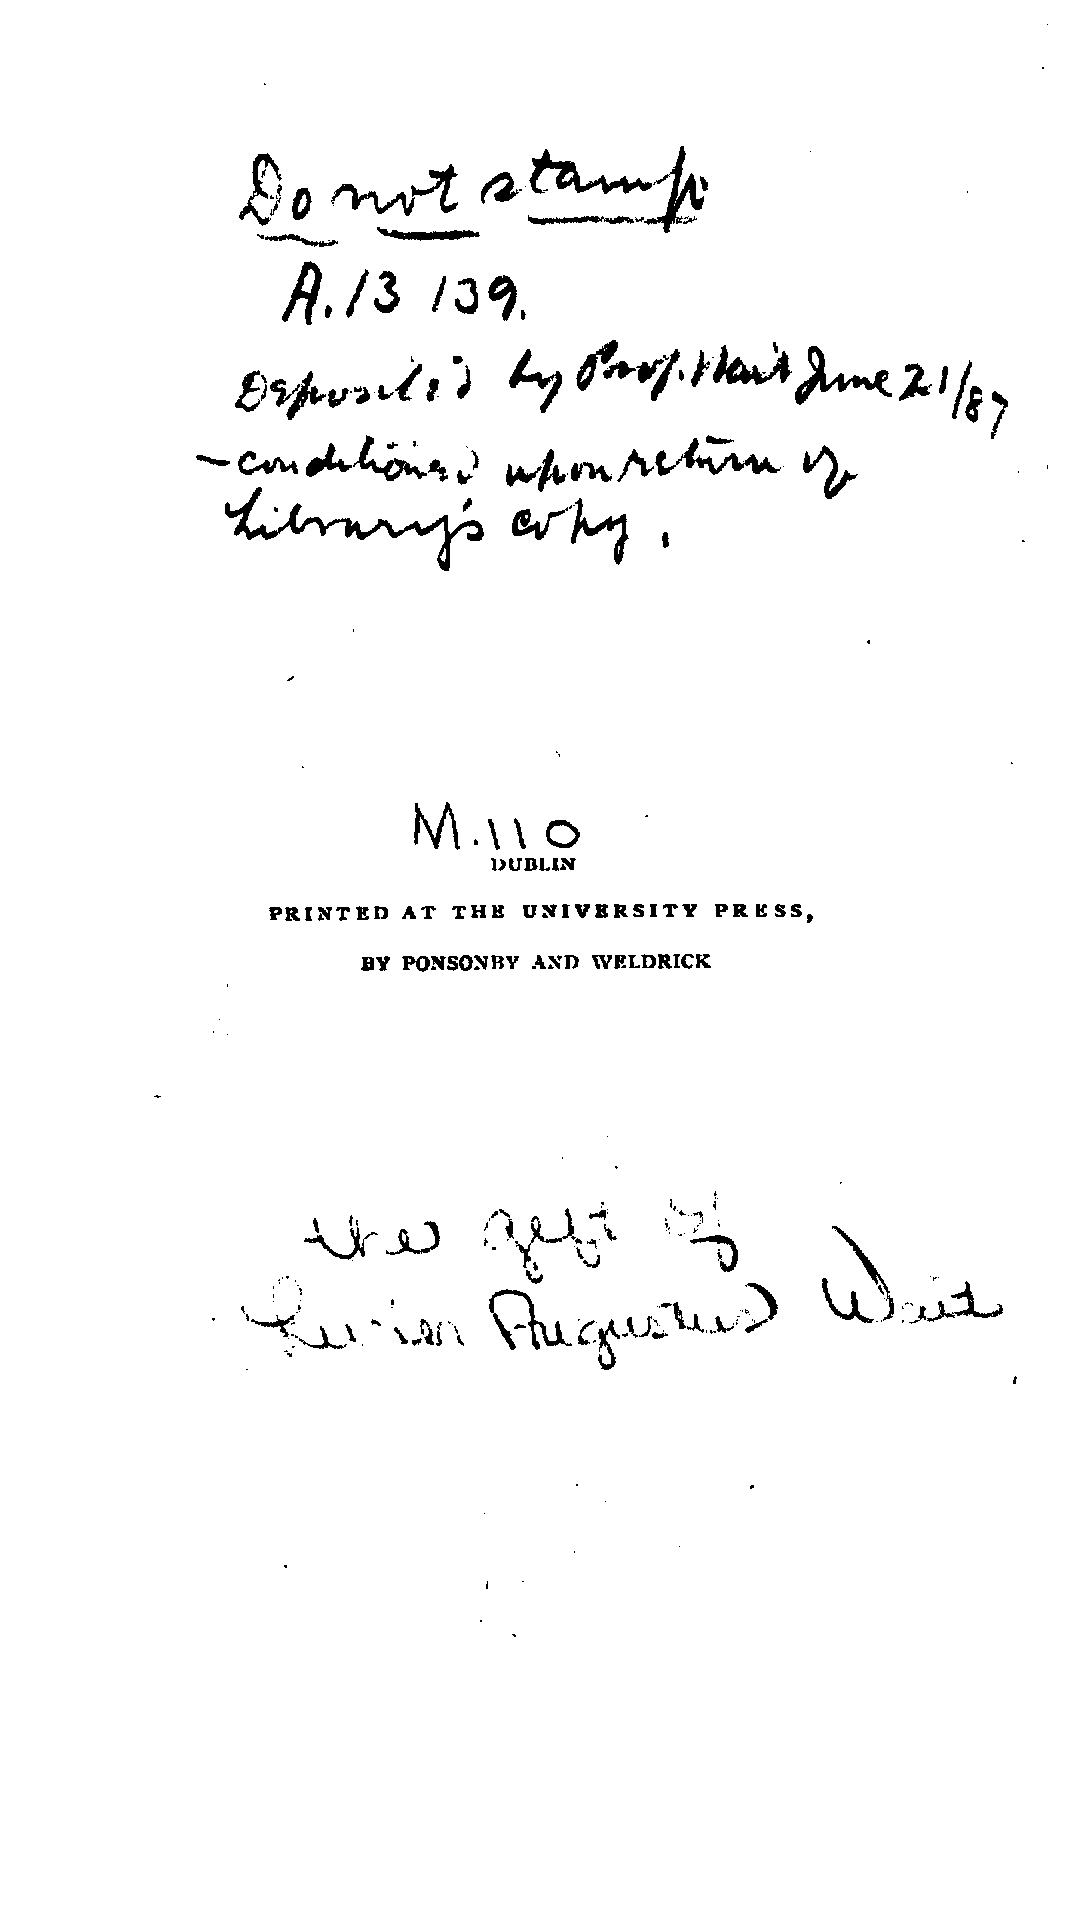 Do not stamp
A. 13 139.
Deposited by Prof. Wait June 21/87
— conditioned upon return of
Library's copy.
M.110
DUBLIN
PRINTED AT THE UNIVERSITY PRESS,
BY PONSONBY AND WELDRICK
the gift of
Lucien Augustus Wait